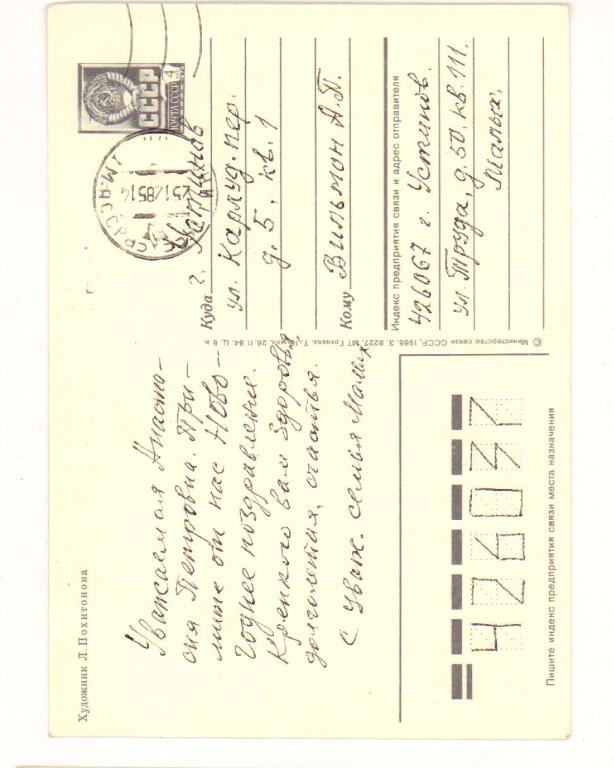 Художник Л. Похитонова
Уважаемая Анаста-
сия Петровна. При-
мите от нас Ново-
годнее поздравления.
Крепкого вам здоровья,
долголетия, счастья.
С уваж. семья Малых
© Министерство связи СССР, 1985. З. 8227. МТ Гознака. 26.11.84. Ц. 6 к.
СССР
ПОЧТА СССР
4
Куда г. Устинов
ул. Карлуд. пер.
д. 5. кв. 1
Кому Вильмон А. П.
Индекс предприятия связи и адрес отправителя
426067 г. Устинов.
ул. Труда, д. 50. кв. 111.
Малых.
426037
Пишите индекс предприятия связи места назначения